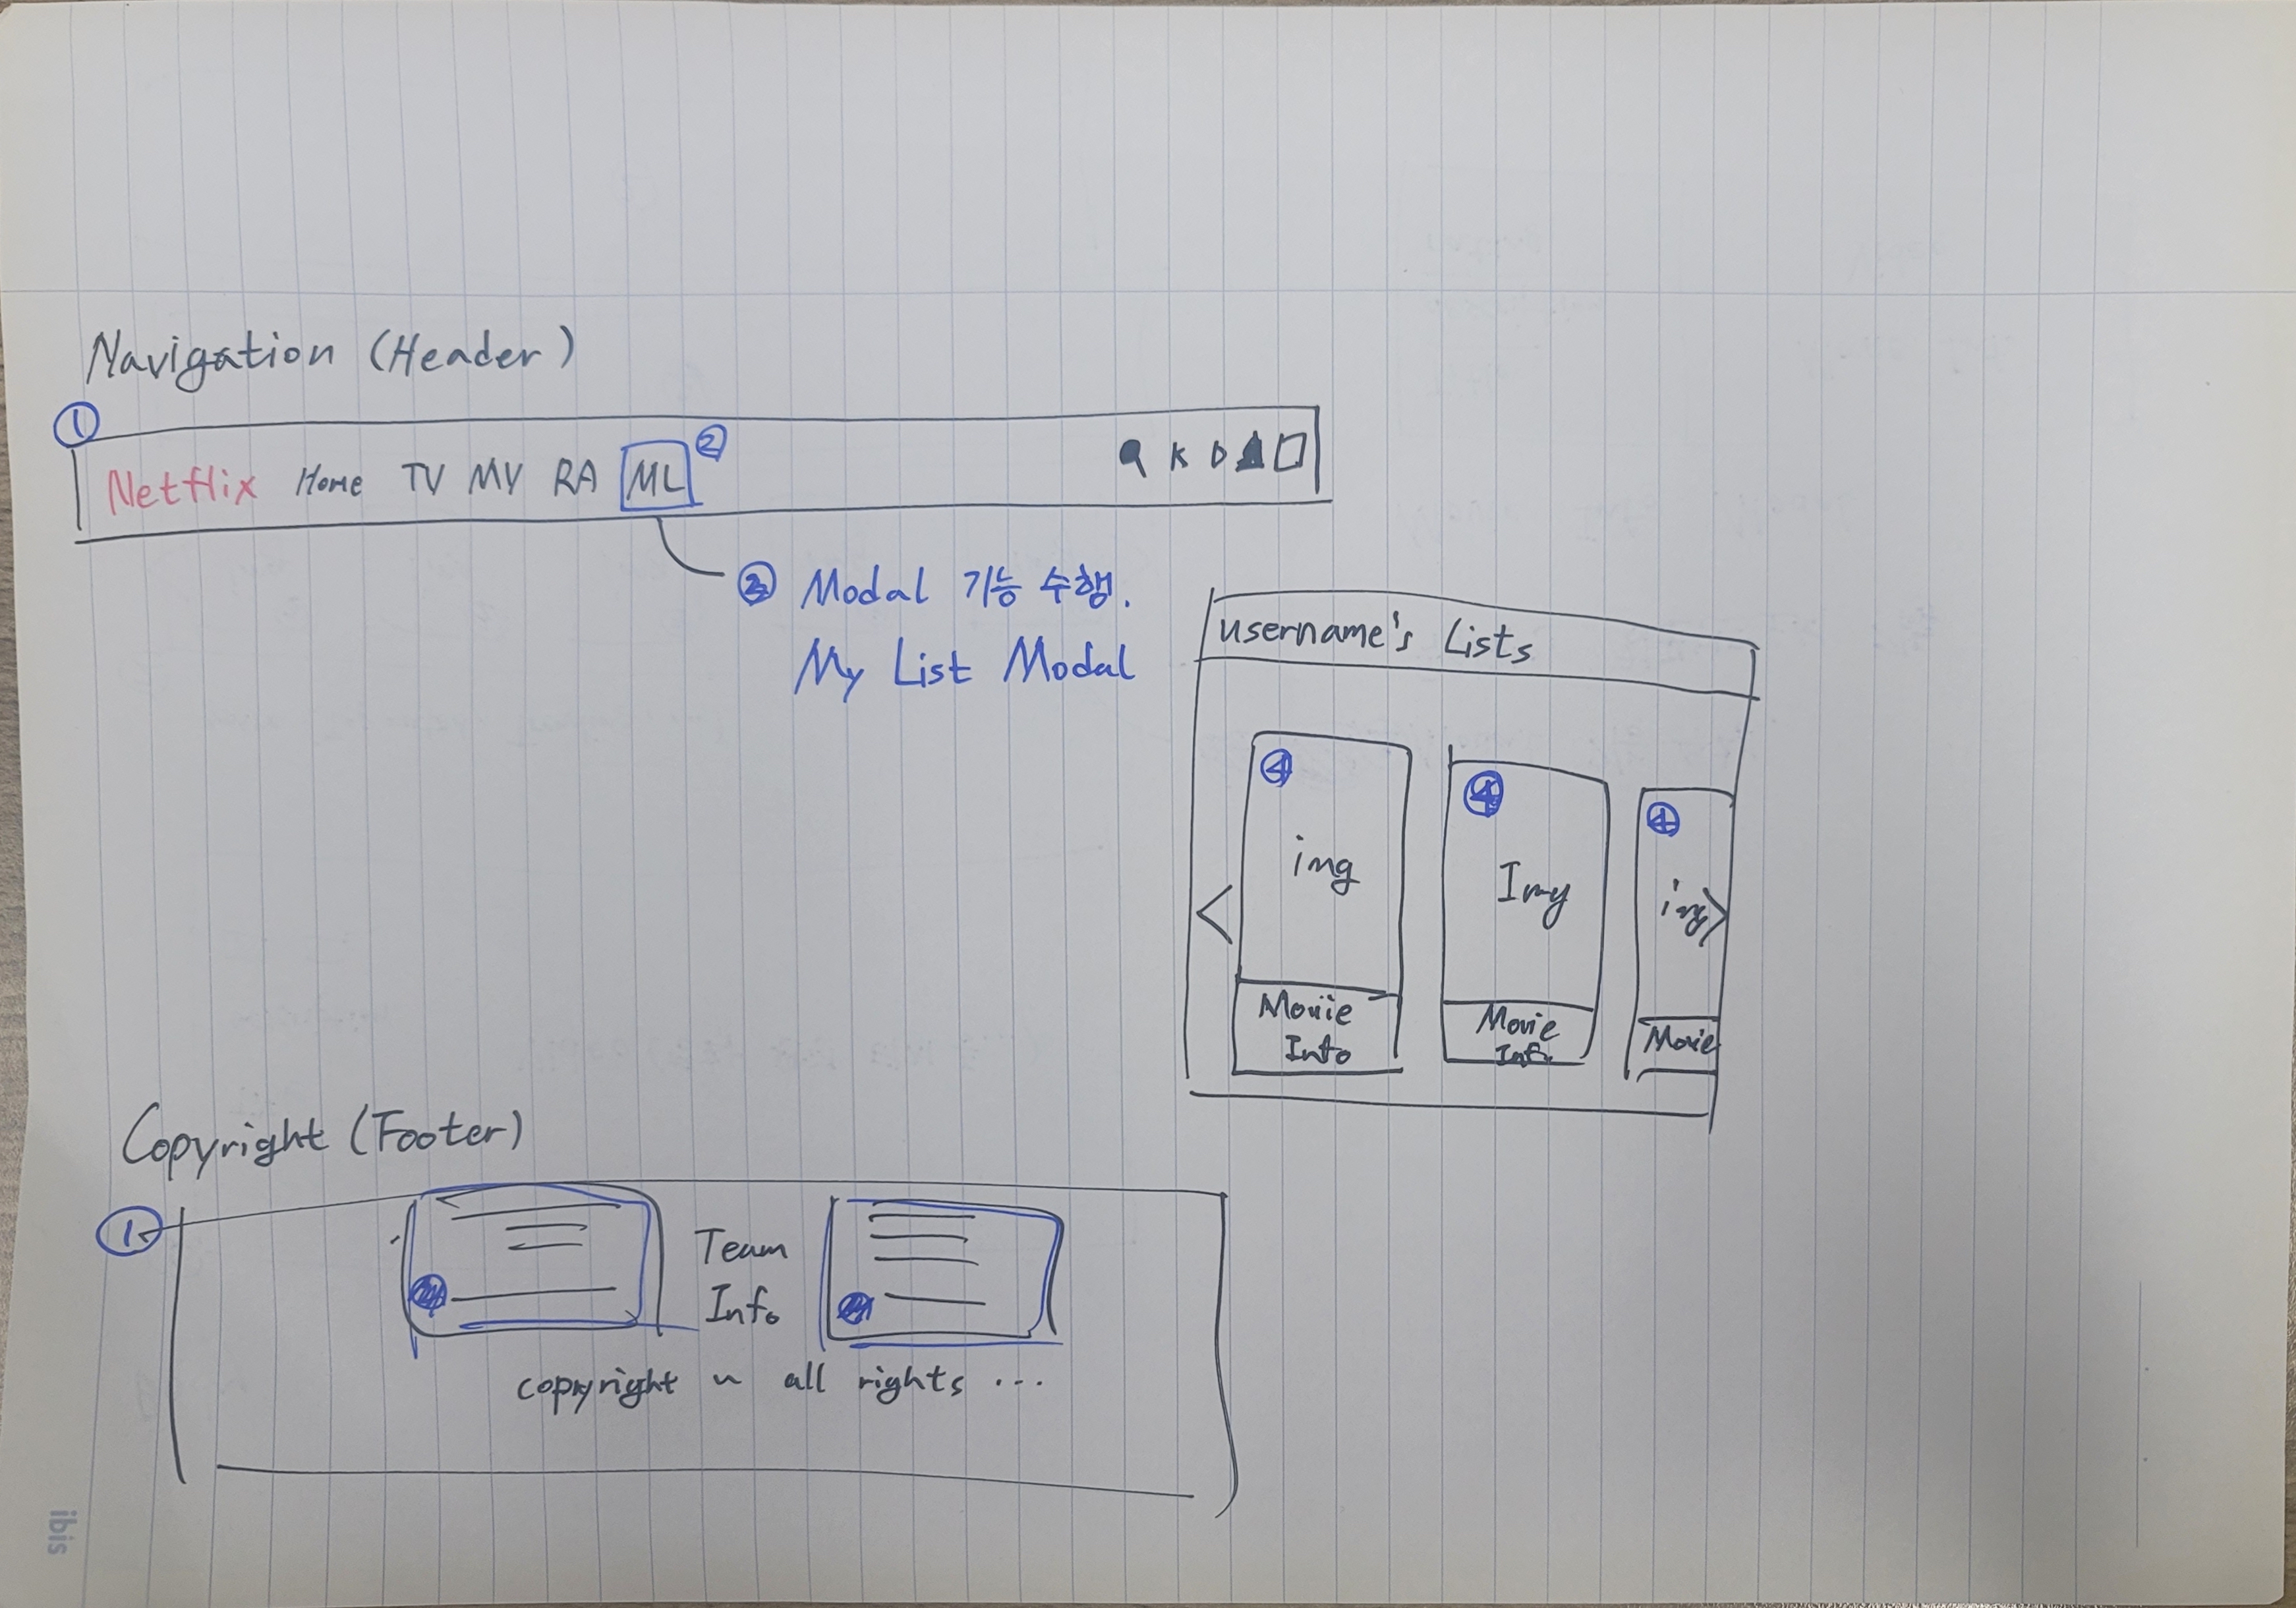 Navigation (Header)
①
Netflix Home TV MY RA ML ② K D
② Modal 기능 수행.
My List Modal
username's Lists
④ ④ ④
img Img img
Movie Info
Movie Info
Movie
Copyright (Footer)
①
Team
Info
copyright ~ all rights ...
ibis